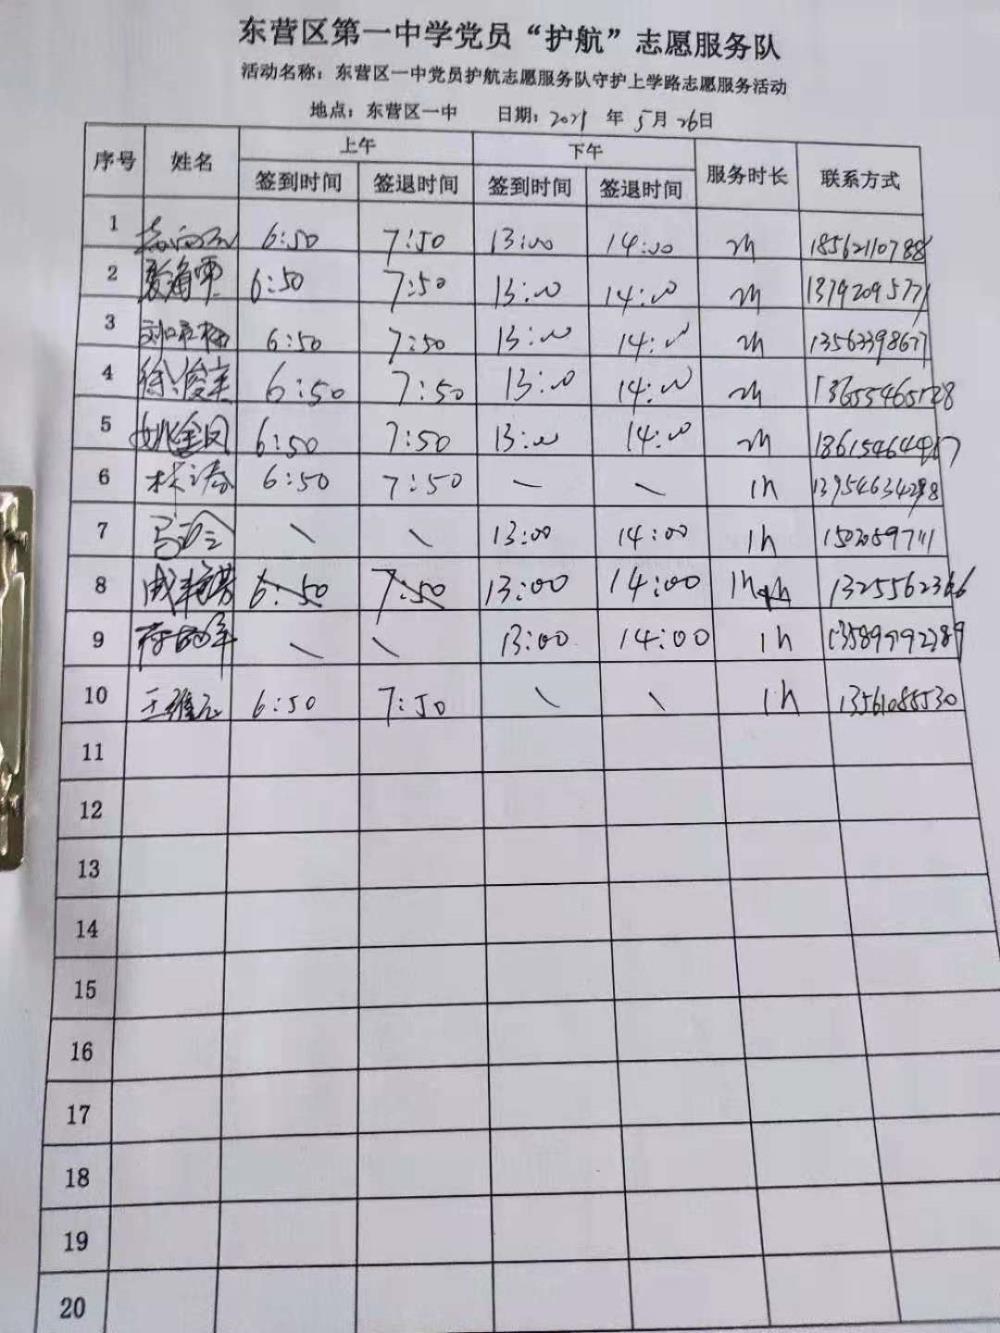 东营区第一中学党员“护航”志愿服务队
活动名称：东营区一中党员护航志愿服务队守护上学路志愿服务活动
地点：东营区一中 日期：2021 年 5月 26日
序号 姓名 上午 下午 服务时长 联系方式
签到时间 签退时间 签到时间 签退时间
1 6:50 7:50 13:00 14:00 2h 18562110788
2 6:50 7:50 13:00 14:00 2h
3 6:50 7:50 13:00 14:00 2h
4 徐俊美 6:50 7:50 13:00 14:00 2h
5 姚金凤 6:50 7:50 13:00 14:00 2h
6 林涛 6:50 7:50 \ \ 1h
7 \ \ 13:00 14:00 1h
8 6:50 7:50 13:00 14:00 1h 13255562366
9 \ \ 13:00 14:00 1h
10 王维元 6:50 7:50 \ \ 1h
11
12
13
14
15
16
17
18
19
20